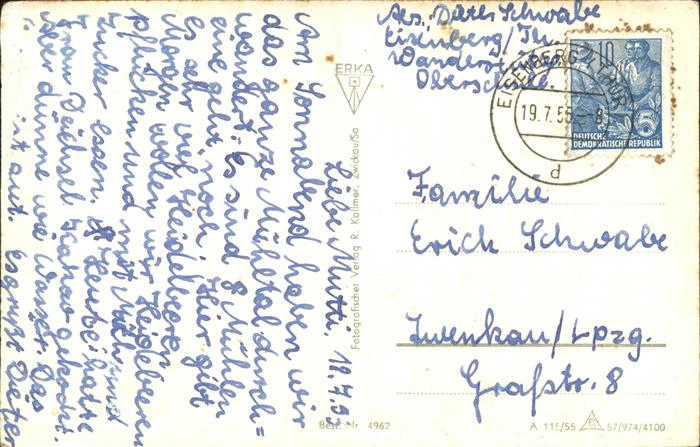 Liebe Mutti, 18.7.55
Am Sonnabend haben wir
das ganze Mühltal durch=
wandert. Es sind 8 Mühlen
eine geht noch. Hier gibt
es sehr viel Heidelbeeren
Morgen wollen wir Heidelbeeren
pflücken und mit Milch und
Zucker essen. Heute hatte
Frau Büchsel Kakao gekocht.
Aber dünne wie Wasser. Das
ist gut. Es grüßt Dieter
ERKA
Fotografischer Verlag R. Kallmer, Zwickau/Sa
Best. Nr. 4962
Abs. Dieter Schwabe
Eisenberg/Th.
Oberschule.
EISENBERG (THÜR)
19.7.55
d
10
5
DEUTSCHE
DEMOKRATISCHE REPUBLIK
Familie
Erich Schwabe
Zwenkau/Lpzg.
Grafstr. 8
A 115/55 57/974/4100